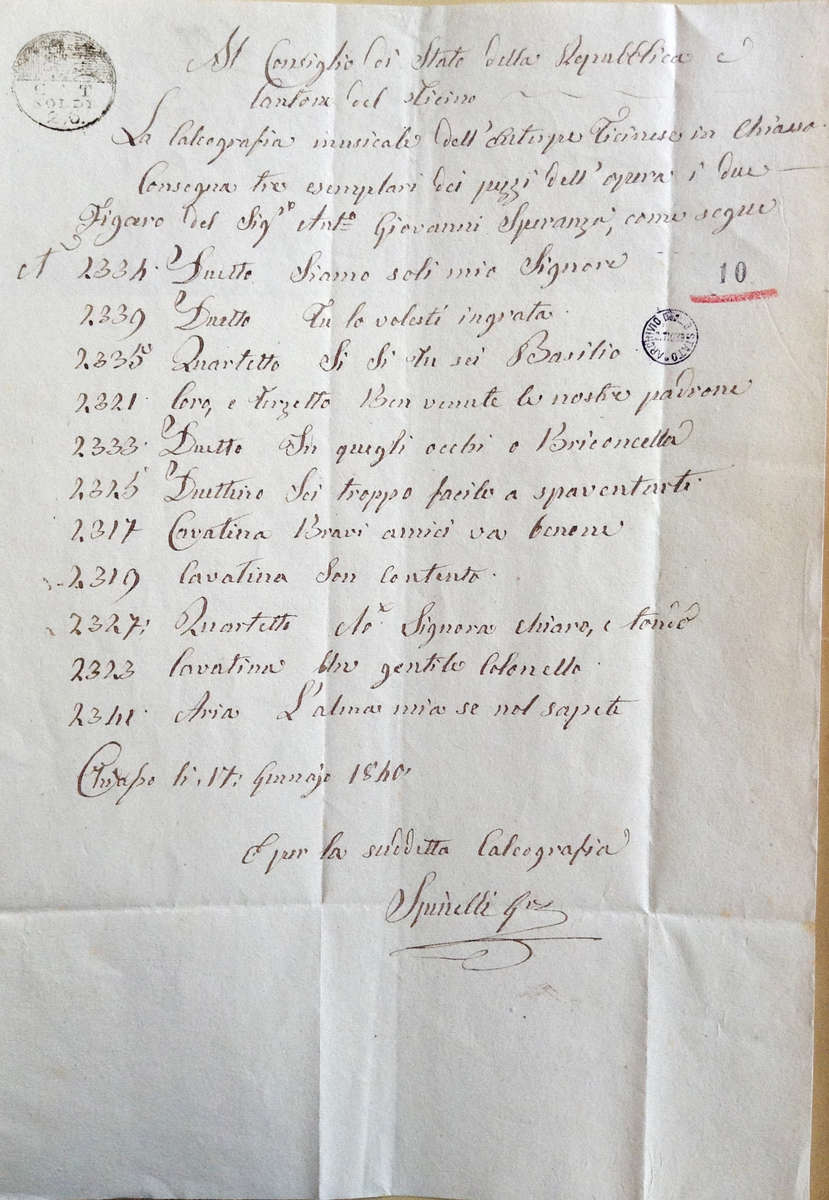 Al Consiglio di Stato della Repubblica e
Cantone del Ticino
La Calcografia musicale dell'Euterpe Ticinese in Chiasso
Consegna tre esemplari dei pezzi dell'opera i due
Figaro del Sigr Anto Giovanni Speranza, come segue
N 2334. Duetto Siamo soli mio Signore
10
2339 Duetto Tu lo volesti ingrata
2335 Quartetto Si Si tu sei Basilio
2321 Coro, e Terzetto Ben venute le nostre padrone
2333. Duetto In quegli occhi o Briconcella
2325 Duettino Sei troppo facile a spaventarti
2317 Cavatina Bravi amici va benone
2319 Cavatina Son contento
2327: Quartetto No Signora chiaro, e tondo
2323 Cavatina Un gentile Colonello
2341. Aria L'alma mia se nol sapete
Chiasso li 17: Gennajo 1840
E per la suddetta Calcografia
Spinelli
SOLDI
ARCHIVIO DELLO STATO